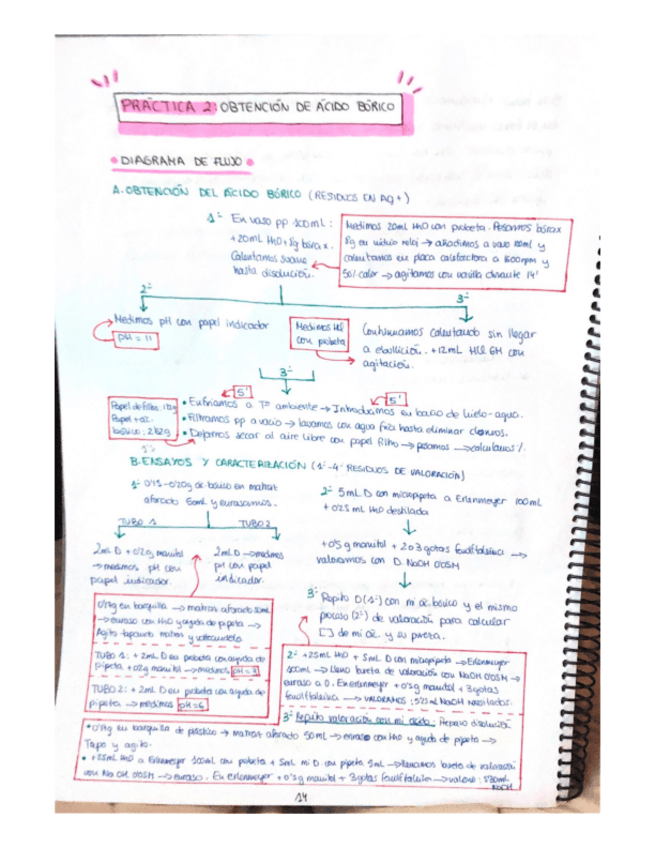 PRÁCTICA 2: OBTENCIÓN DE ÁCIDO BÓRICO
DIAGRAMA DE FLUJO
A. OBTENCIÓN DEL ÁCIDO BÓRICO (RESIDUOS EN AQ+)
1º En vaso pp 100mL:
+20mL H2O + 8g bórax.
Calentamos suave
hasta disolución.
Medimos 20mL H2O con probeta. Pesamos bórax
8g en vidrio reloj → añadimos a vaso 100ml y
calentamos en placa calefactora a 600rpm y
50% calor → agitamos con varilla durante 14'
2º
3º
Medimos pH con papel indicador
pH = 11
Medimos HCl
con probeta
Continuamos calentando sin llegar
a ebullición. +12mL HCl 6M con
agitación.
3º
5'
5'
Papel de filtro:
Papel + ác.
bórico:
• Enfriamos a Tª ambiente → Introducimos en baño de hielo-agua.
• Filtramos pp a vacío → lavamos con agua fría hasta eliminar cloruros.
• Dejamos secar al aire libre con papel filtro → pesamos → calculamos %.
B. ENSAYOS Y CARACTERIZACIÓN (1º-4º RESIDUOS DE VALORACIÓN)
1º 0'15-0'20g ác. bórico en matraz
aforado 50mL y enrasamos.
2º 5mL D con micropipeta a Erlenmeyer 100mL
+ 025 mL H2O destilada
TUBO 1
TUBO 2
2mL D + 0'2g manitol
→ medimos pH con
papel indicador.
2mL D → medimos
pH con papel
indicador.
+0'5g manitol + 2 o 3 gotas fenolftaleína →
valoramos con D. NaOH 0'05M
3º Repito D(1º) con mi ác. bórico y el mismo
proceso (2º) de valoración para calcular
[ ] de mi ác. y su pureza.
en barquilla → matraz aforado 50mL
→ enraso con H2O y ayuda de pipeta →
Agito tapando matraz y volteándolo
TUBO 1: + 2mL D en probeta con ayuda de
pipeta, + 0'2g manitol → medimos
TUBO 2: + 2mL D en probeta con ayuda de
pipeta → medimos pH=6
2º +25mL H2O + 5mL D con micropipeta → Erlenmeyer
100mL → lleno bureta de valoración con NaOH 0'05M →
enraso a 0. En erlenmeyer + 0'5g manitol + 3 gotas
fenolftaleína → VALORAMOS: mL NaOH necesitados.
3º Repito valoración con mi ácido: Preparo disolución
en barquilla de plástico → matraz aforado 50mL → enraso con H2O y ayuda de pipeta →
Tapo y agito.
• +25mL H2O a Erlenmeyer 100mL con probeta + 5mL mi D con pipeta 5mL → llenamos bureta de valoración
con NaOH 0'05M → enraso. En erlenmeyer + 0'5g manitol + 3 gotas fenolftaleína → valoro:
NaOH
14